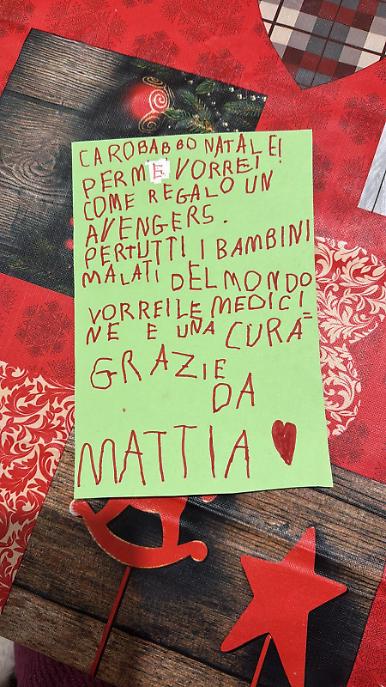 CARO BABBO NATALE!
PER ME VORREI
COME REGALO UN
AVENGERS.
PER TUTTI I BAMBINI
MALATI DEL MONDO
VORREI LE MEDICI=
NE E UNA CURA
GRAZIE
DA
MATTIA